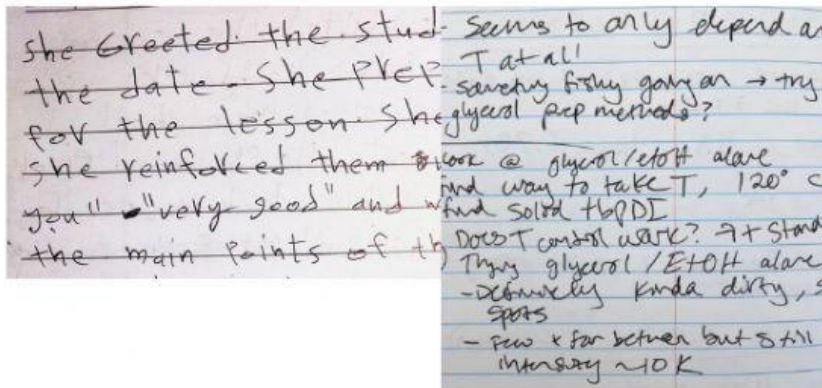 she Greeted the stud
the date. She prep
for the lesson. She
she reinforced them
you" "very good" and w
the main points of th
- Seems to only depend on
T at all
- something fishy going on → try
glycerol prep methods?
look @ glycerol/etoH alone
find way to take T, 120° C
find solid tbPDI
Does T control work?
Trying glycerol / EtOH alone
- Definitely kinda dirty, s
spots
- Few + far between but still
intensity ~10 K